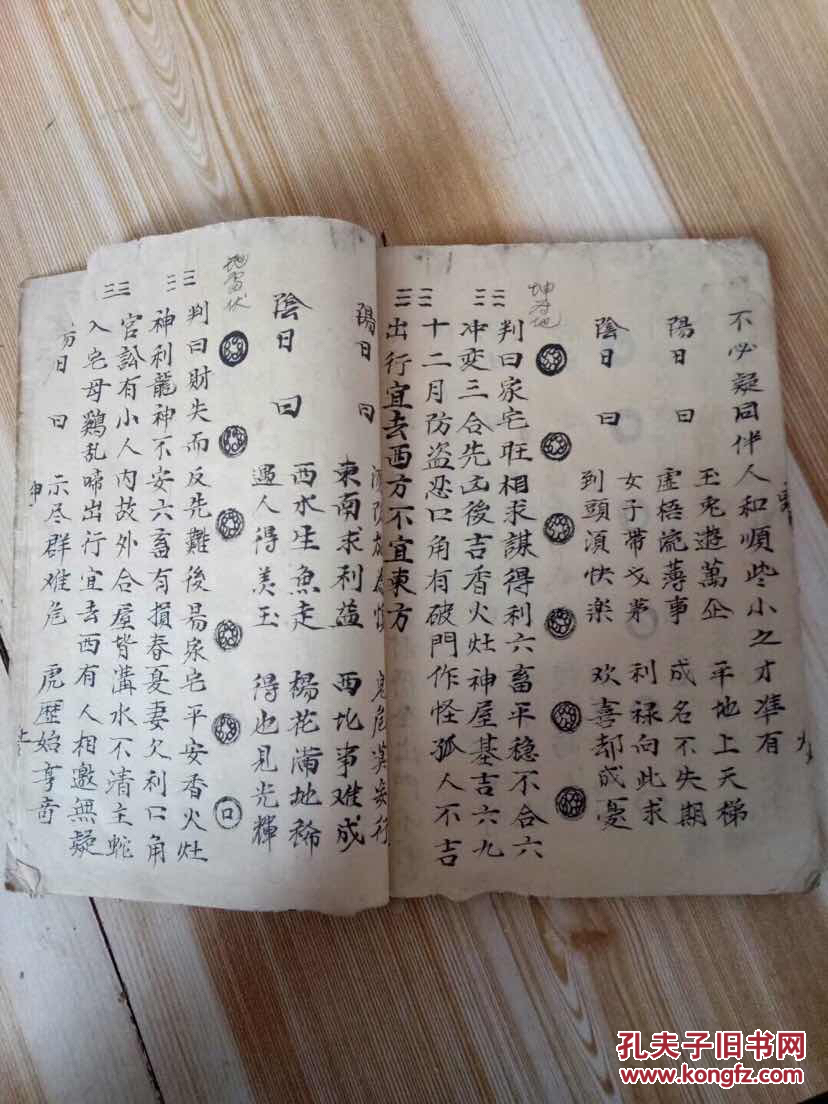 不必疑同伴人和順些小之才準有
陽日曰
玉兔遊萬企 平地上天梯
虚梧流薄事 成名不失期
陰日曰
女子帶戈茅 利禄向此求
到頭湏快楽 欢喜却成憂
坤为地
判曰家宅旺相求謀得利六畜平穏不合六
冲变三合先凶後吉香火灶神屋基吉六九
十二月防盗恐口角有破門作怪孤人不吉
出行宜去西方不宜東方
陽日曰
東南求利益 西北事难成
陰日曰
西水生魚走 楊花满地稀
遇人得美玉 得也見光輝
地雷伏
口
判曰財失而反先難後易家宅平安香火灶
神利龍神不安六畜有損春夏妻欠利口角
官訟有小人内故外合屋背溝水不清主蛇
入宅母鷄乱啼出行宜去西有人相邀無疑
日曰
示尽群难危 虎歷始享奇
孔夫子旧书网
www.kongfz.com